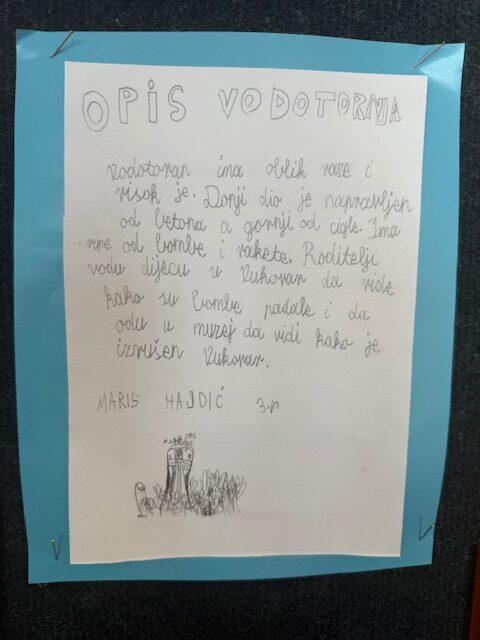 OPIS VODOTORNJA
Vodotoran ima oblik vaze i
visok je. Donji dio je napravljen
od betona a gornji od cigle. Ima
rupe od bombe i rakete. Roditelji
vodu dijecu u Vukovar da vide
kako su bombe padale i da
odu u muzej da vidi kako je
izrušen Vukovar.
MARIS HAJDIĆ 3.r